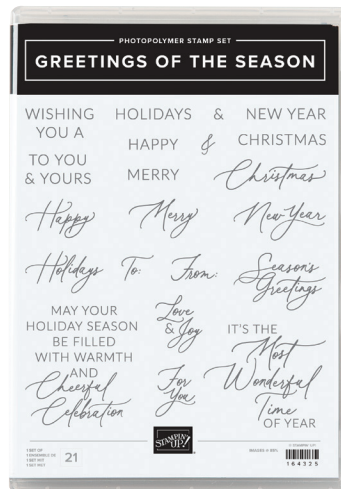 PHOTOPOLYMER STAMP SET
GREETINGS OF THE SEASON
WISHING
YOU A
HOLIDAYS & NEW YEAR
HAPPY & CHRISTMAS
TO YOU
& YOURS
MERRY
Christmas
Happy
Merry
New Year
Holidays
To:
From:
Season's
Greetings
MAY YOUR
HOLIDAY SEASON
BE FILLED
WITH WARMTH
AND
Cheerful
Celebration
Love
& Joy
For
You
IT'S THE
Most
Wonderful
Time
OF YEAR
STAMPIN' UP!
1 SET OF
21
© STAMPIN' UP!
164325